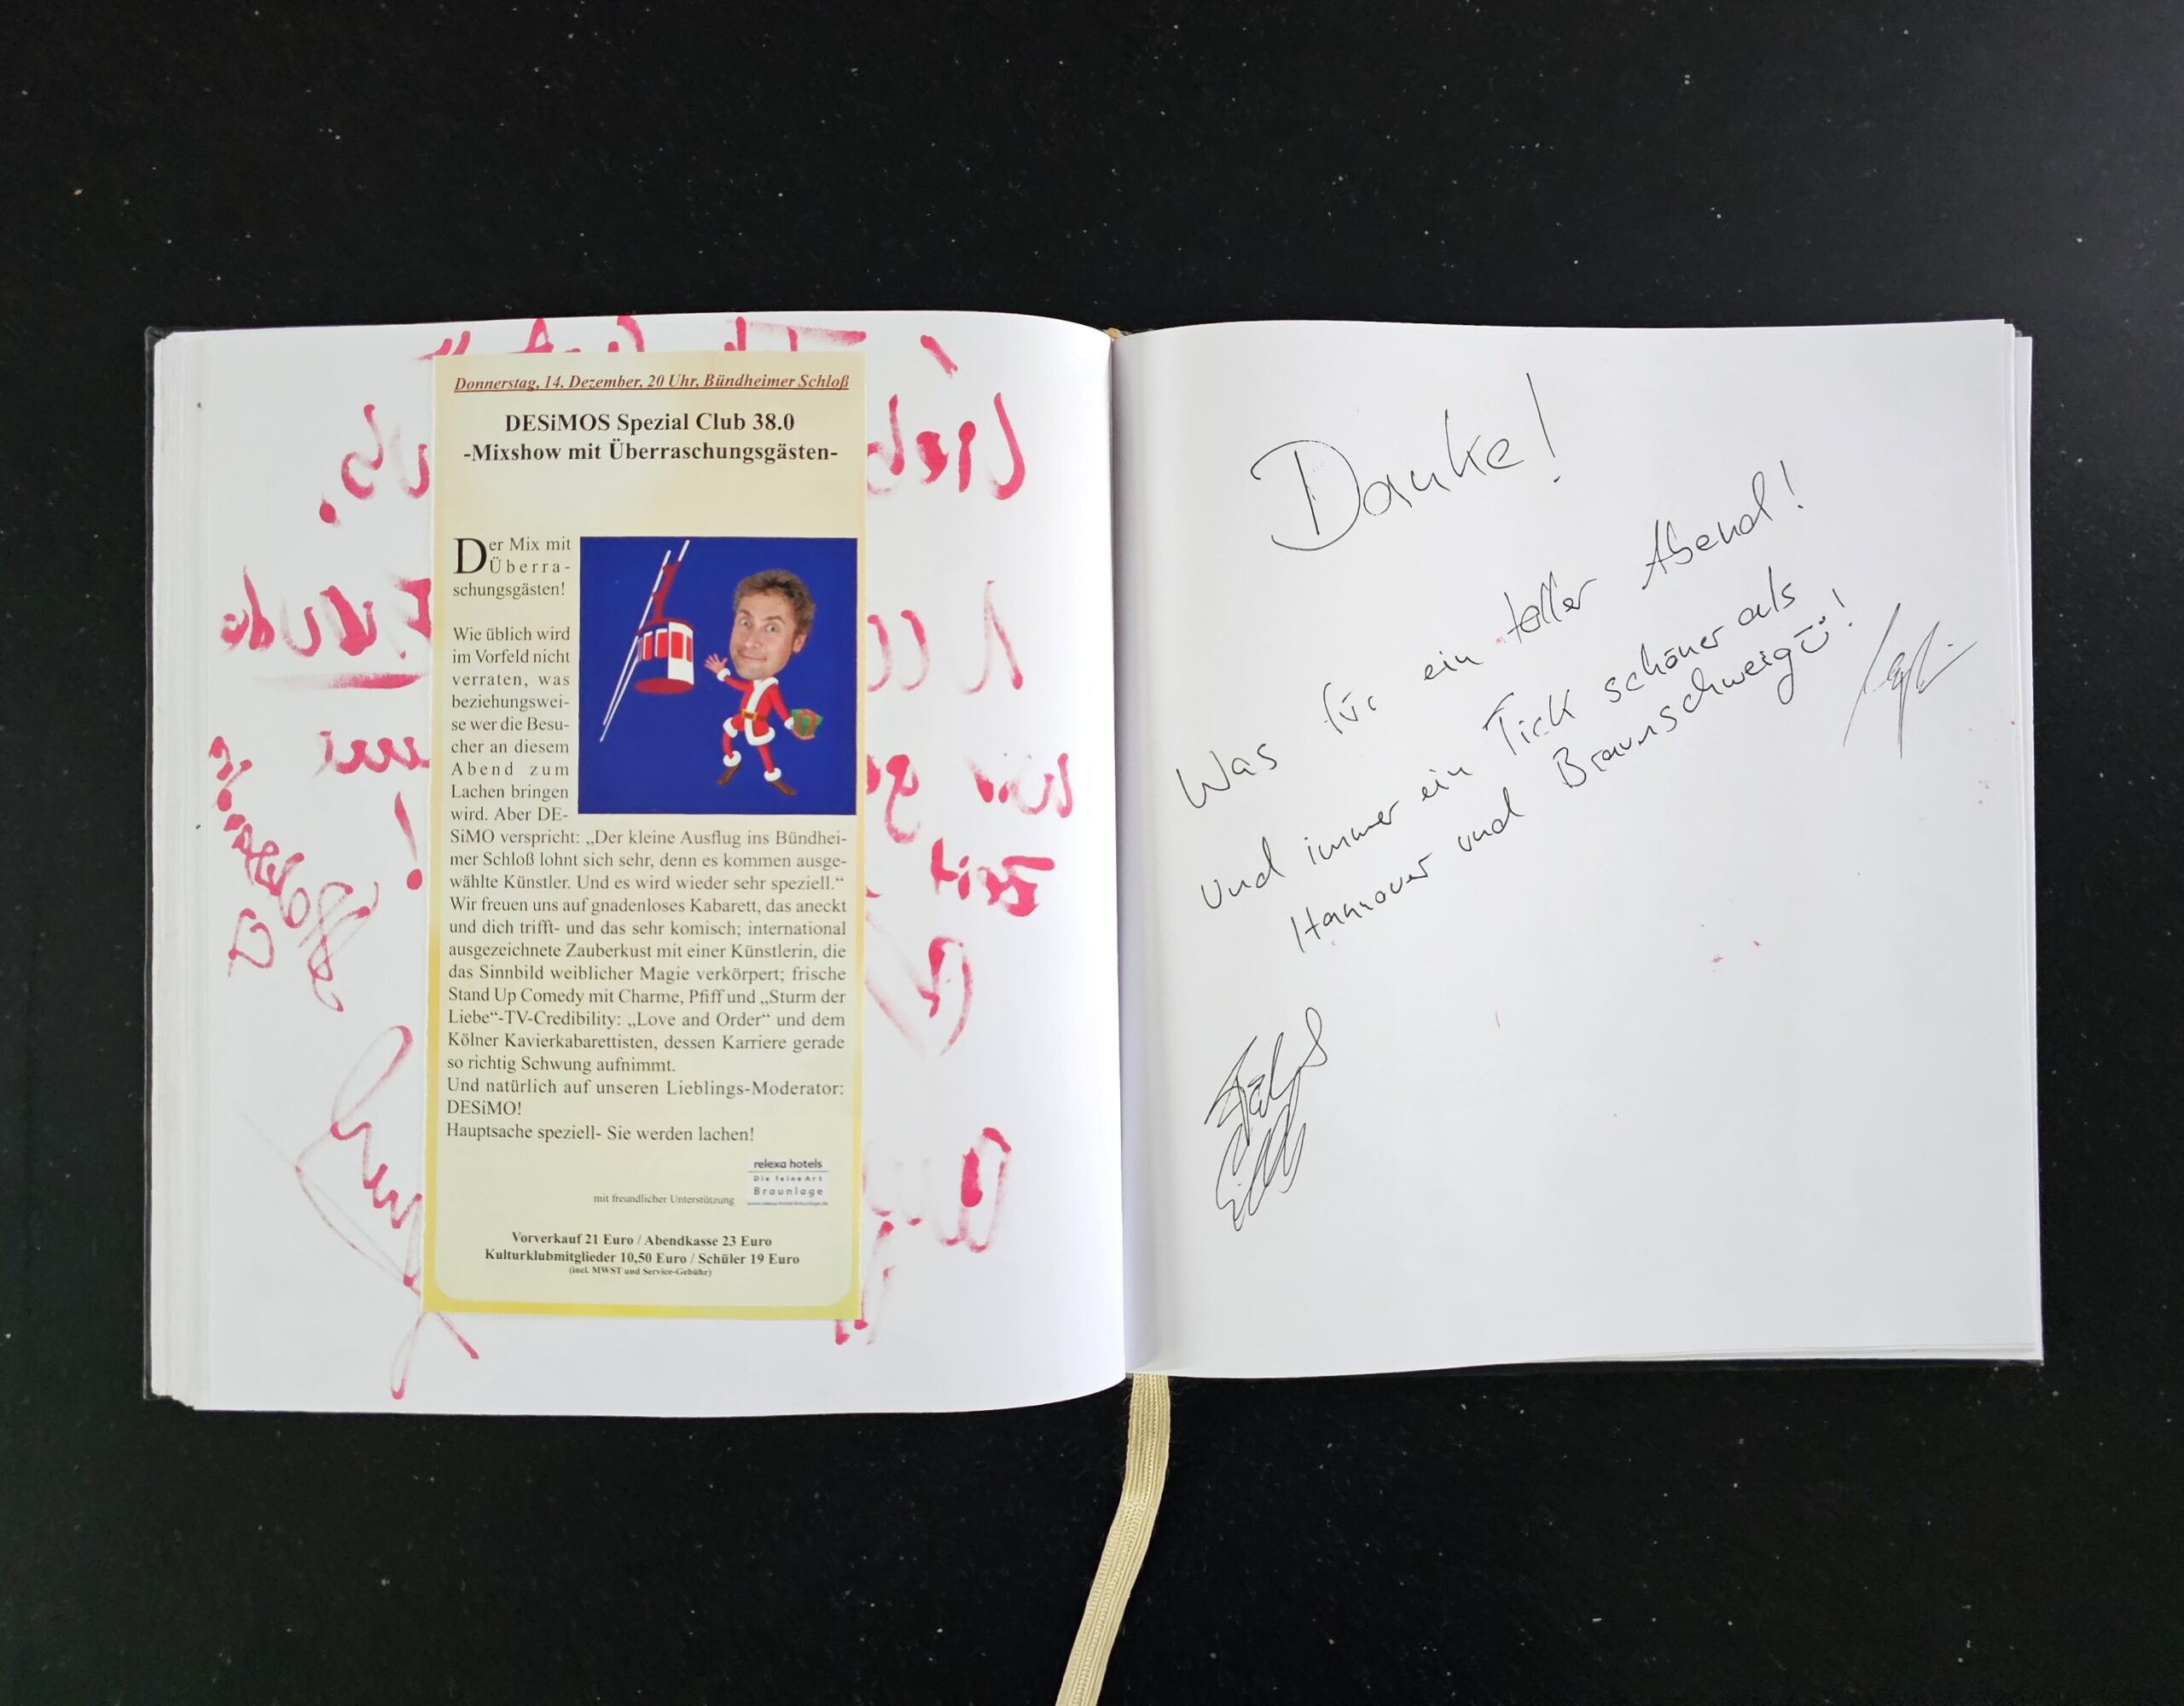 Donnerstag, 14. Dezember, 20 Uhr, Bündheimer Schloß
DESiMOS Spezial Club 38.0
-Mixshow mit Überraschungsgästen-
Der Mix mit
Überra-
schungsgästen!
Wie üblich wird
im Vorfeld nicht
verraten, was
beziehungswei-
se wer die Besu-
cher an diesem
Abend zum
Lachen bringen
wird. Aber DE-
SiMO verspricht: „Der kleine Ausflug ins Bündhei-
mer Schloß lohnt sich sehr, denn es kommen ausge-
wählte Künstler. Und es wird wieder sehr speziell.“
Wir freuen uns auf gnadenloses Kabarett, das aneckt
und dich trifft- und das sehr komisch; international
ausgezeichnete Zauberkust mit einer Künstlerin, die
das Sinnbild weiblicher Magie verkörpert; frische
Stand Up Comedy mit Charme, Pfiff und „Sturm der
Liebe“-TV-Credibility: „Love and Order“ und dem
Kölner Kavierkabarettisten, dessen Karriere gerade
so richtig Schwung aufnimmt.
Und natürlich auf unseren Lieblings-Moderator:
DESiMO!
Hauptsache speziell- Sie werden lachen!
mit freundlicher Unterstützung
relexa hotels
Die feine Art
Braunlage
www.relexa-hotel-braunlage.de
Vorverkauf 21 Euro / Abendkasse 23 Euro
Kulturklubmitglieder 10,50 Euro / Schüler 19 Euro
(incl. MWST und Service-Gebühr)
Danke!
Was für ein toller Abend!
Und immer ein Tick schöner als
Hannover und Braunschweig!